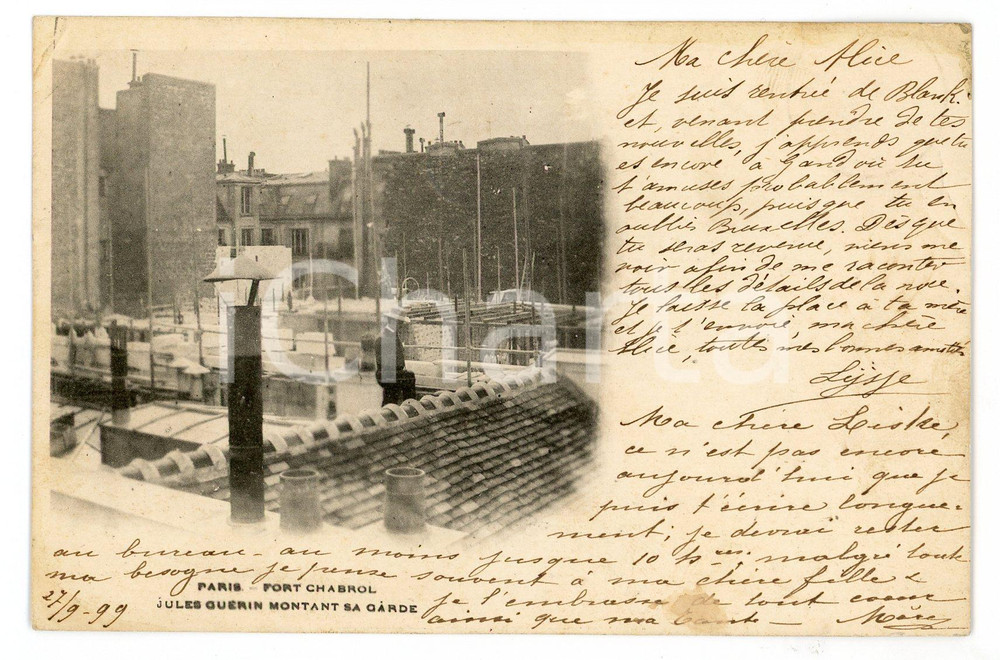 Ma chère Alice
Je suis rentrée de Blank.
et, venant prendre de tes
nouvelles, j'apprends que tu
es encore à Gand où tu
t'amuses probablement
beaucoup, puisque tu en
oublies Bruxelles. Dès que
tu seras revenue, viens me
voir afin de me raconter
tous les détails de la noce.
Je laisse la place à ta mère
et je t'envoie, ma chère
Alice, toutes mes bonnes amitiés
Ma chère
ce n'est pas encore
aujourd'hui que je
puis t'écrire longue-
ment, je devrai rester
au bureau - au moins jusque 10 hres malgré toute
ma besogne je pense souvent à ma chère fille &
je l'embrasse de tout coeur
ainsi que ma tante - Mère
27/9-99
PARIS - FORT CHABROL
JULES GUÉRIN MONTANT SA GARDE
iCharta